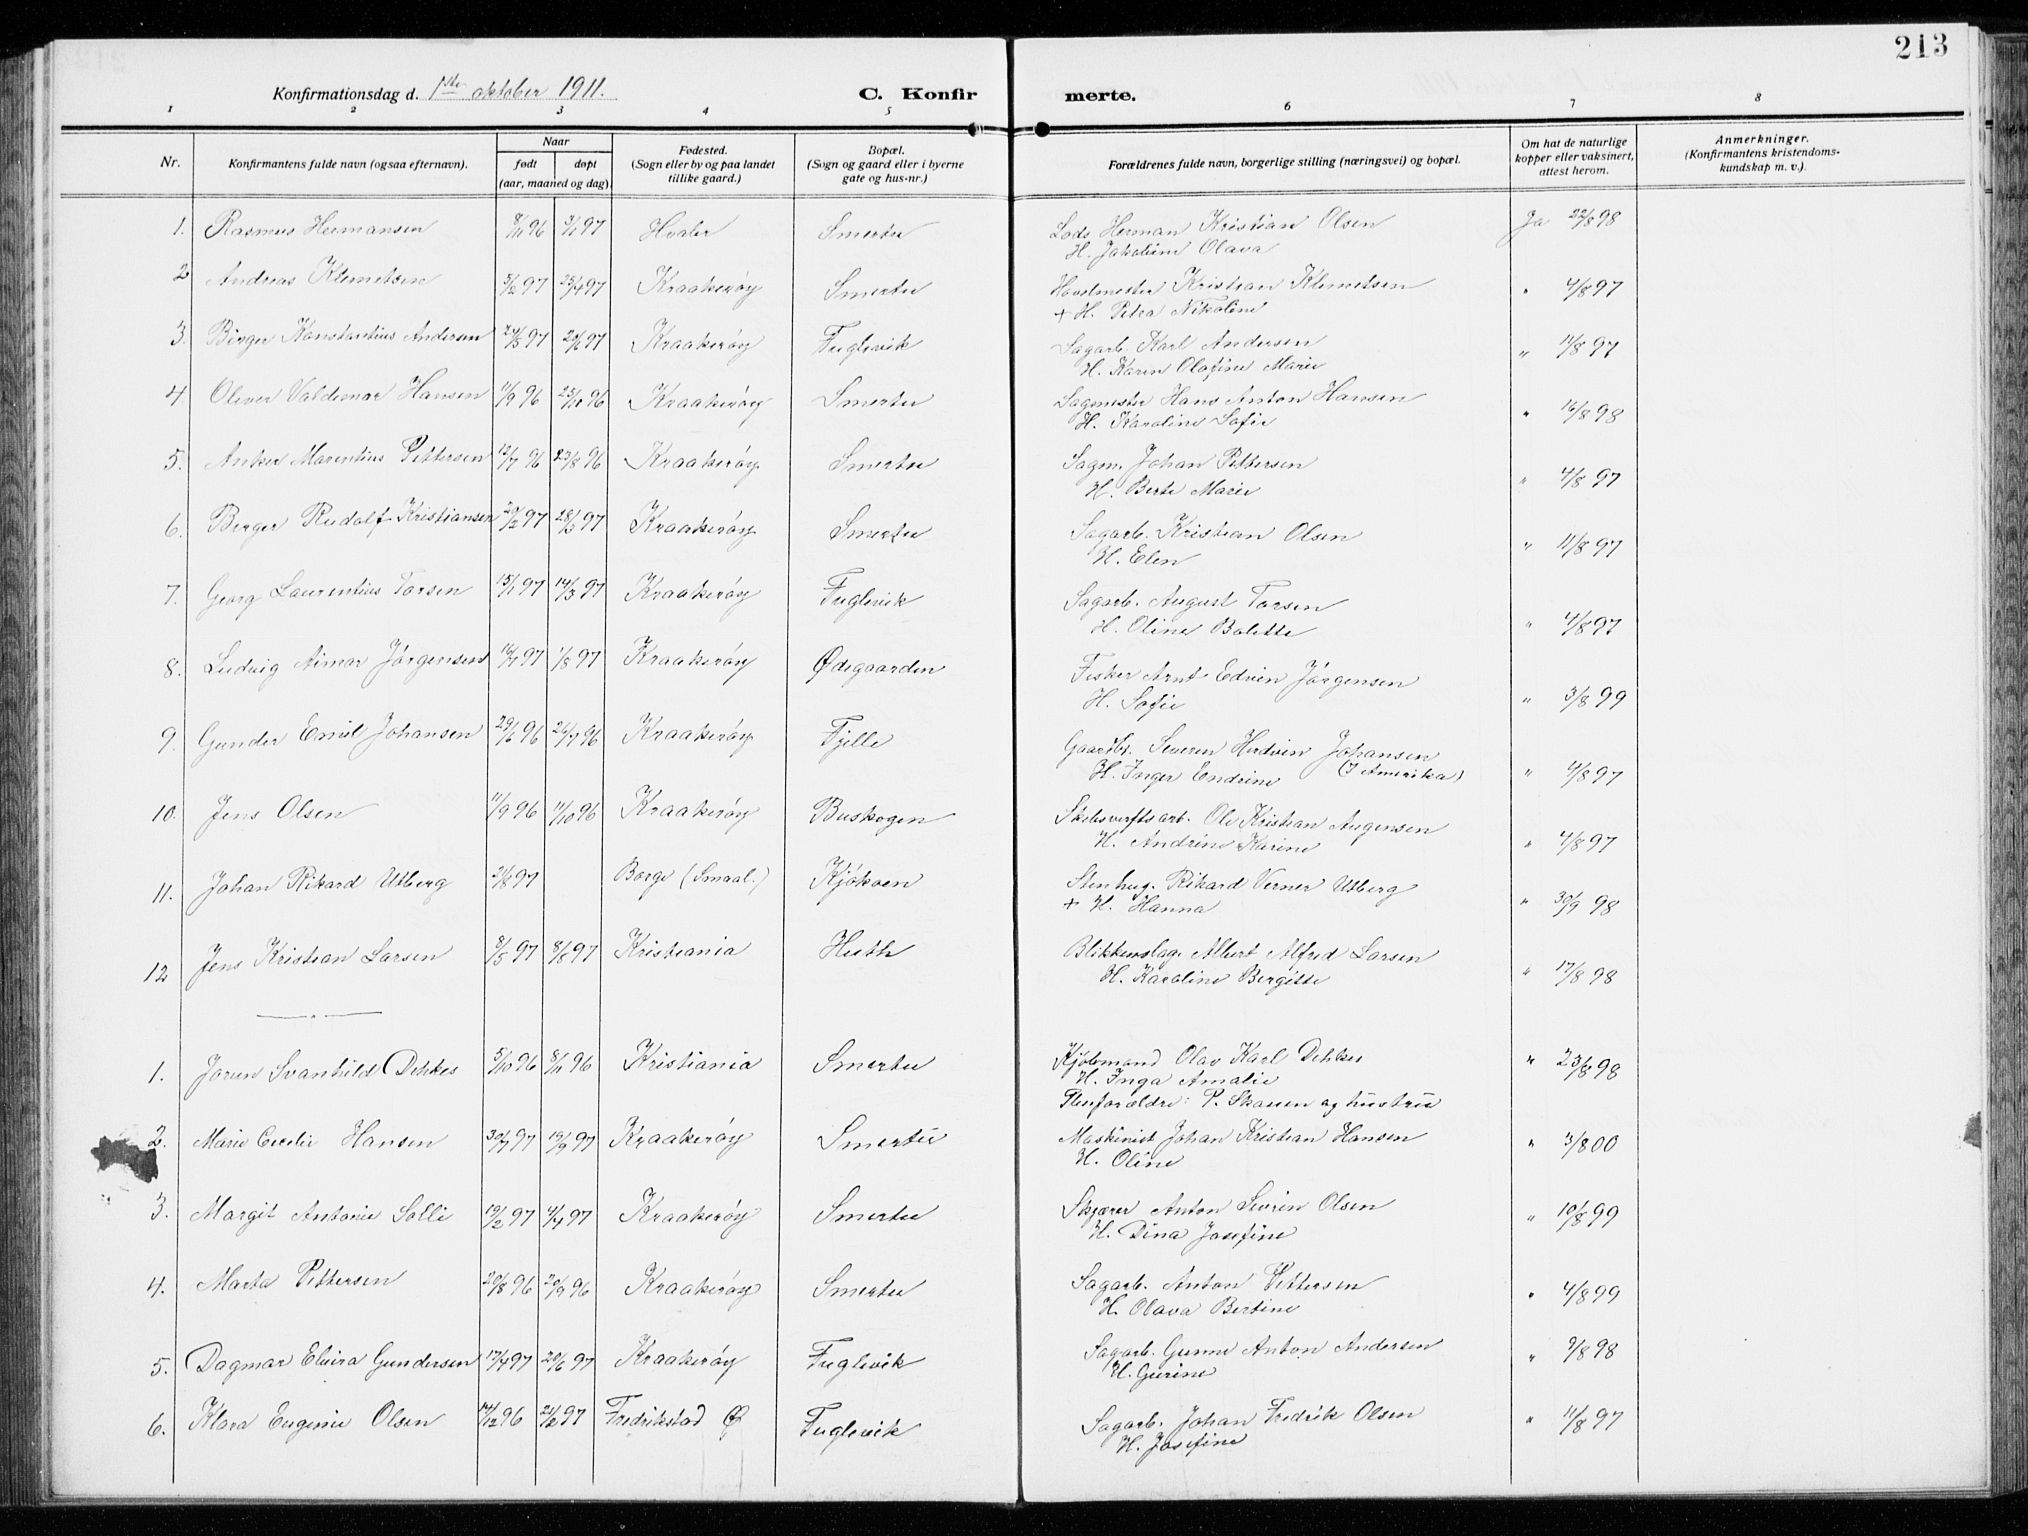 213
Konfirmationsdag d. 1ste oktober 1911.
C. Konfirmerte.
1 2 3 4 5 6 7 8
Nr.
Konfirmantens fulde navn (ogsaa efternavn).
Naar
født døpt
(aar, maaned og dag).
Fødested.
(Sogn eller by og paa landet
tillike gaard.)
Bopæl.
(Sogn og gaard eller i byerne
gate og hus-nr.)
Forældrenes fulde navn, borgerlige stilling (næringsvei) og bopæl.
Om hat de naturlige
kopper eller vaksinert,
attest herom.
Anmerkninger.
(Konfirmantens kristendoms-
kundskap m. v.).
1. Rasmus Hermansen 8/11 96 3/1 97 Hvaler Smertu Lods Herman Kristian Olsen Ja 22/8 98
H. Jakobine Olava
2 Andreas Klemetsen 5/2 97 25/4 97 Kraakerøy Smertu Hovelmester Kristian Klemetsen " 4/8 97
+ H. Petra Nikoline
3. Birger Konstantius Andersen 24/5 97 20/6 97 Kraakerøy Fuglevik Sagarb. Karl Andersen " 11/8 97
H. Karen Olafine Marie
4 Oliver Valdemar Hansen 11/9 96 25/10 96 Kraakerøy Smertu Sagmester Hans Anton Hansen " 16/8 98
H. Karoline Sofie
5. Anker Marentius Pettersen 12/7 96 23/8 96 Kraakerøy Smertu Sagm. Johan Pettersen " 4/8 97
H. Berte Marie
6. Berger Rudolf Kristiansen 20/2 97 28/3 97 Kraakerøy Smertu Sagarb. Kristian Olsen " 11/8 97
H. Elen
7. Georg Laurentius Torsen 15/1 97 14/3 97 Kraakerøy Fuglevik Sagarb. August Torsen " 4/8 97
H. Oline Bolette
8. Ludvig Aimar Jørgensen 16/7 97 1/8 97 Kraakerøy Ødegaarden Fisker Arnt Edvin Jørgensen " 3/8 99
H. Sofie
9. Gunder Emil Johansen 29/6 96 26/7 96 Kraakerøy Fjelle Gaardbr. Severin Hedvin Johansen " 4/8 97
H. Inger Endrine (I Amerika)
10. Jens Olsen 11/9 96 11/10 96 Kraakerøy Buskogen Skibsverftsarb. Ole Kristian Augensen " 4/8 97
H. Andrine Karine
11. Johan Rikard Utberg 2/8 97 Borge (Smaal.) Kjøkøen Stenhug. Rikard Verner Utberg " 30/9 98
+ H. Hanna
12 Jens Kristian Larsen 8/5 97 8/8 97 Kristiania Huth Blikkenslag. Albert Alfred Larsen " 17/8 98
H. Karoline Bergitte
1. Jorun Svanhild Dehkes 5/10 96 8/11 96 Kristiania Smertu Kjøbmand Olav Karl Dehkes " 23/8 98
H. Inga Amalie
Pleiforældre: P. Skauen og hustru
2. Marie Cecelie Hansen 30/7 97 19/9 97 Kraakerøy Smertu Maskinist Johan Kristian Hansen " 3/8 00
H. Oline
3. Margit Antonie Solli 19/2 97 4/4 97 Kraakerøy Smertu Skjærer Anton Severin Olsen " 10/8 99
H. Dina Josefine
4. Marta Pettersen 20/8 96 20/9 96 Kraakerøy Smertu Sagarb. Anton Pettersen " 4/8 99
H. Olava Bertine
5. Dagmar Elvira Gundersen 17/4 97 20/6 97 Kraakerøy Fuglevik Sagarb. Gunne Anton Andersen " 9/8 98
H. Gurine
6. Klara Eugenie Olsen 14/12 96 21/2 97 Fredrikstad Ø Fuglevik Sagarb. Johan Fredrik Olsen " 11/8 97
H. Josefine